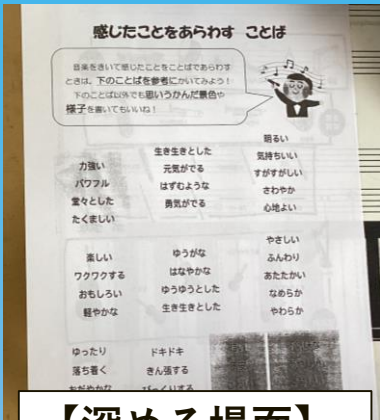 感じたことをあらわす ことば
音楽をきいて感じたことをことばであらわす
ときは、下のことばを参考にかいてみよう！
下のことば以外でも思いうかんだ景色や
様子を書いてもいいね！
力強い
パワフル
堂々とした
たくましい
生き生きとした
元気がでる
はずむような
勇気がでる
明るい
気持ちいい
すがすがしい
さわやか
心地よい
楽しい
ワクワクする
おもしろい
軽やかな
ゆうがな
はなやかな
ゆうゆうとした
生き生きとした
やさしい
ふんわり
あたたかい
なめらか
やわらか
ゆったり
落ち着く
おだやかな
ドキドキ
きん張する
びっくりする
【深める場面】